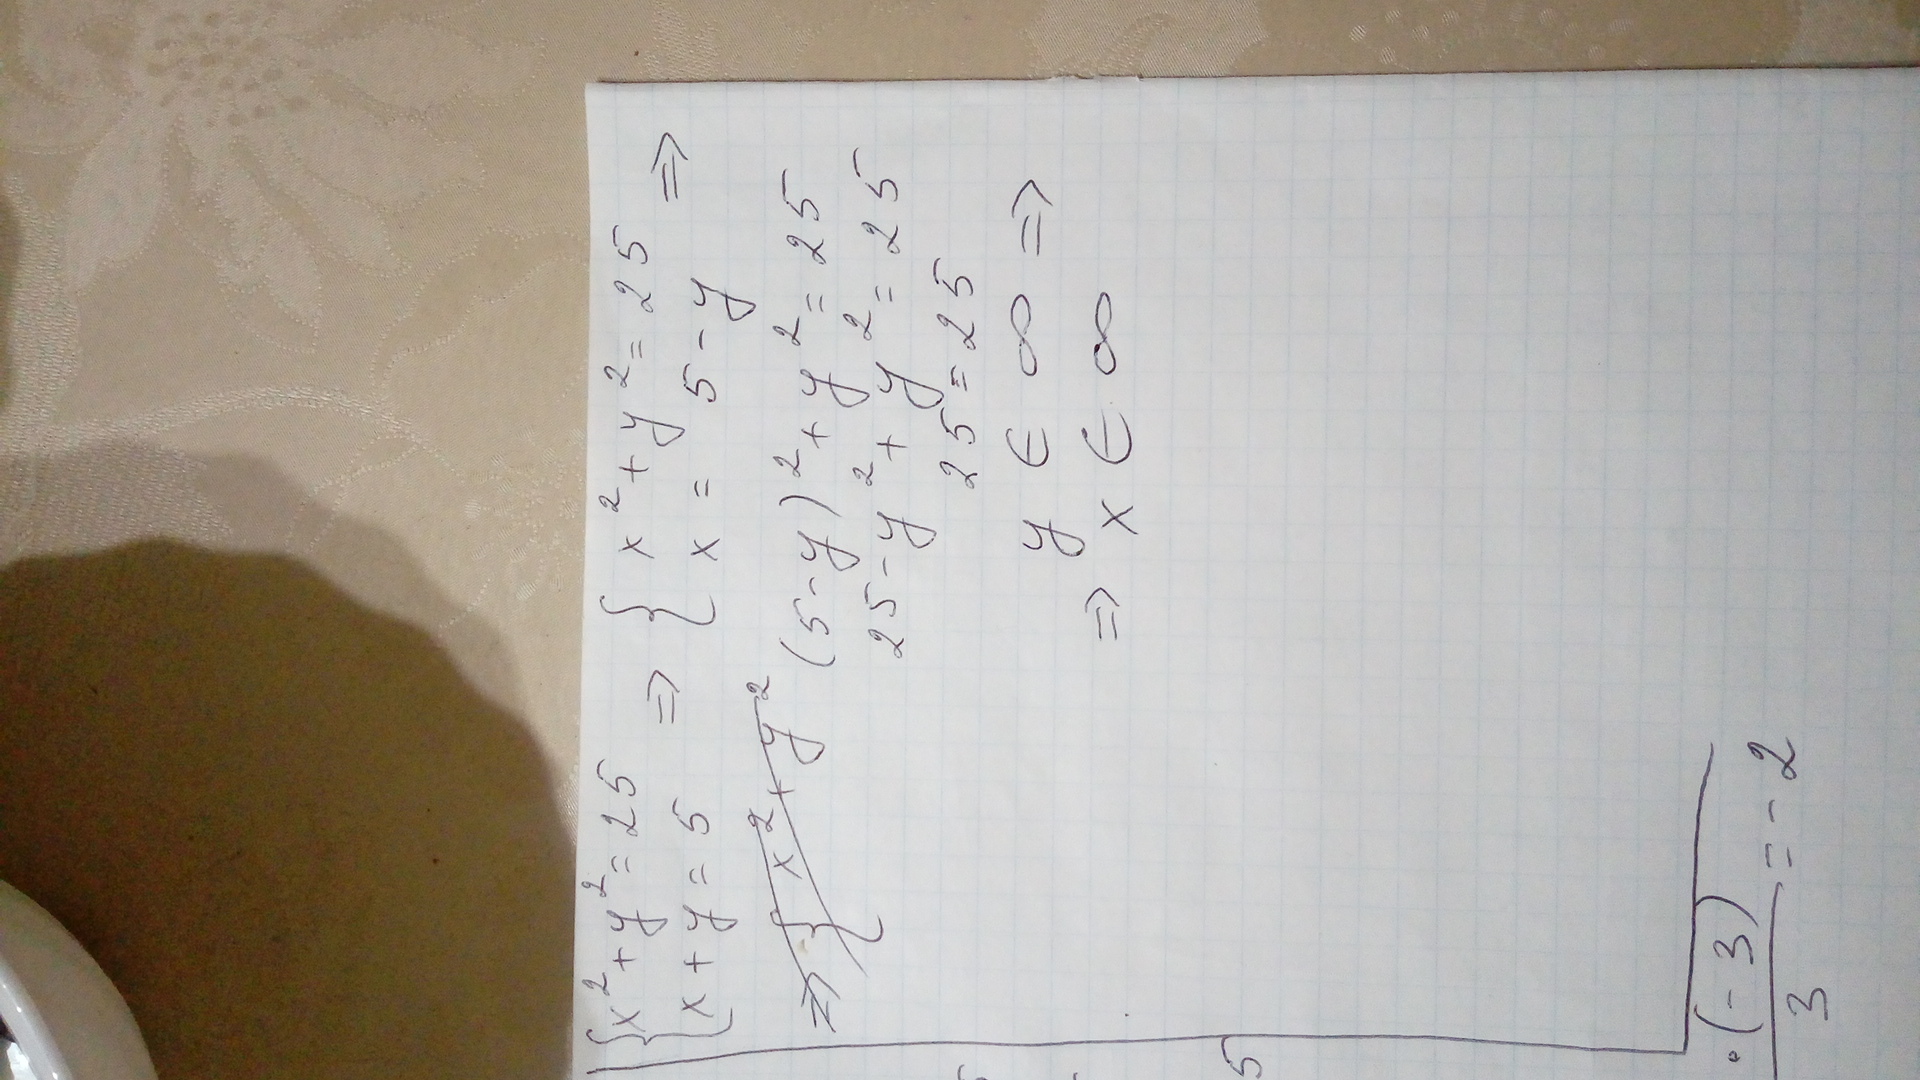 { x² + y² = 25 => { x² + y² = 25
{ x + y = 5 { x = 5 - y =>
=> { x² + y²
(5 - y)² + y² = 25
25 - y² + y² = 25
25 = 25
y ∈ ∞ =>
=> x ∈ ∞
5
· (-3)
3
= -2